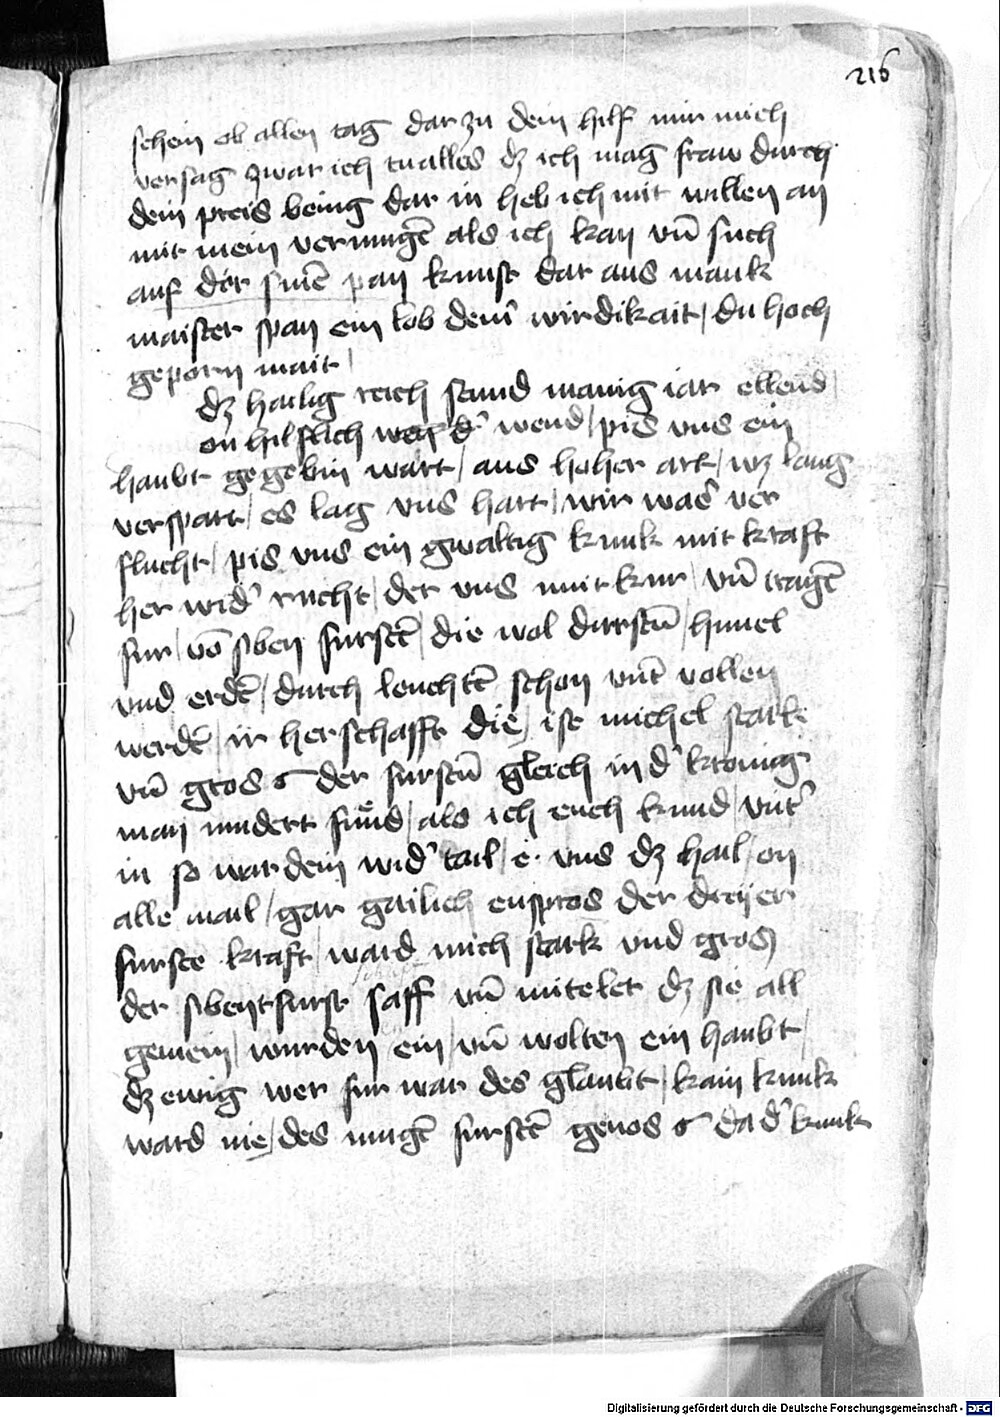 216
schein ob allen tag dar zu dein hilf mir nicht
versag zwar ich tu alles dz ich mag fraw durch
dein preis being dar in heb ich mit willen an
mit mein vermugē als ich kan vn̄ such
auf der sinē pan kunst dar aus mank
maister span ein lob deinr wirdikait / du hoch
geporn mait /
dz hailig reich stund manig iar ellend /
on hilflich wend / pis vns ein
haubt gegebin wart / aus hoher art / wz lang
verspart / es lag vns hart / wir warē ver
flucht / pis vns ein gwaltig kunk mit kraft
her wider rucht / der vns mit kur / vn̄ tragē
fur / vō siben furstē / die wol durstn̄ / himel
vnd erdē / durch leuchtē schon vnt vollen
werdē / ir herschafft die / ist michel stark
vn̄ gros der furstn̄ gleich in der kronig
man nindert fund / als ich euch kund / vnter
in so war dein wider tail / e. vns dz hail / on
alle mail / gar gailich enspros der dreyer
furste kraft / ward mich stark vnd gros
der sibent furst saff vn̄ mitelet dz sie all
gemein / wurden ein / vn̄ wolten ein haubt /
dz ewig wer fur war des glaubt / kain kunk
ward nie / des mugē furstē genos da der kunk
Digitalisierung gefördert durch die Deutsche Forschungsgemeinschaft - DFG